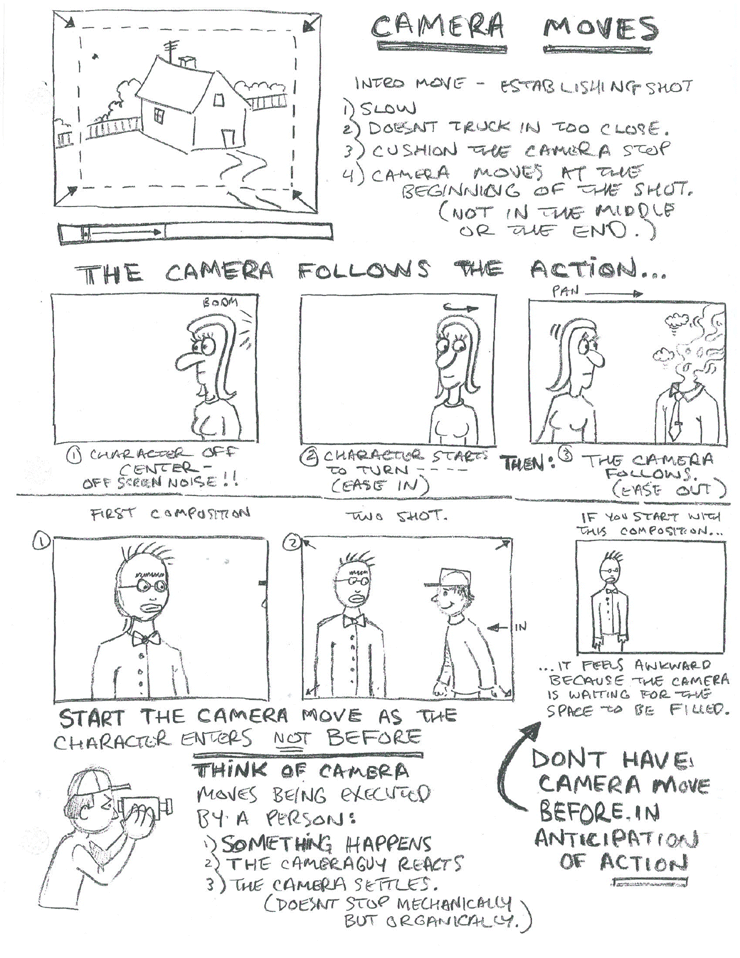 CAMERA MOVES
INTRO MOVE - ESTABLISHING SHOT
1) SLOW
2) DOESNT TRUCK IN TOO CLOSE.
3) CUSHION THE CAMERA STOP
4) CAMERA MOVES AT THE
BEGINNING OF THE SHOT.
(NOT IN THE MIDDLE
OR THE END.)
THE CAMERA FOLLOWS THE ACTION...
BOOM
PAN
① CHARACTER OFF
CENTER-
OFF SCREEN NOISE!!
② CHARACTER STARTS
TO TURN -----
(EASE IN)
THEN: ③ THE CAMERA
FOLLOWS.
(EASE OUT)
FIRST COMPOSITION
TWO SHOT.
IF YOU START WITH
THIS COMPOSITION...
①
②
IN
...IT FEELS AWKWARD
BECAUSE THE CAMERA
IS WAITING FOR THE
SPACE TO BE FILLED.
START THE CAMERA MOVE AS THE
CHARACTER ENTERS NOT BEFORE
THINK OF CAMERA
MOVES BEING EXECUTED
BY A PERSON:
1) SOMETHING HAPPENS
2) THE CAMERAGUY REACTS
3) THE CAMERA SETTLES.
(DOESNT STOP MECHANICALLY
BUT ORGANICALLY.)
DONT HAVE
CAMERA MOVE
BEFORE IN
ANTICIPATION
OF ACTION